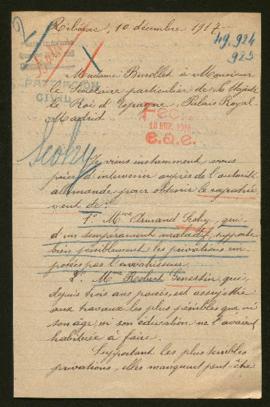 Ribérac, 10 décembre 1917
49.924
925
PATRIMONIO
CIVAL
Madame Burellet à Monsieur
le Secrétaire particulier de Sa Majesté
le Roi d'Espagne, Palais Royal
Madrid.
e.a.e.
Seohy
Je viens instamment vous
prier d'intervenir auprès de l'autorité
allemande pour obtenir le rapatrie
ment de:
1° Mme Armand Seohy, qui
d'un tempérament maladif, supporte
très péniblement les privations im
posées par l'envahisseur.
2° Mme Robert Genestin qui,
depuis trois ans passés, est assujettie
aux travaux les plus pénibles que ni
son âge, ni son éducation ne l'avaient
habituée à faire.
Supportant les plus terribles
privations, elles manquent peut-être